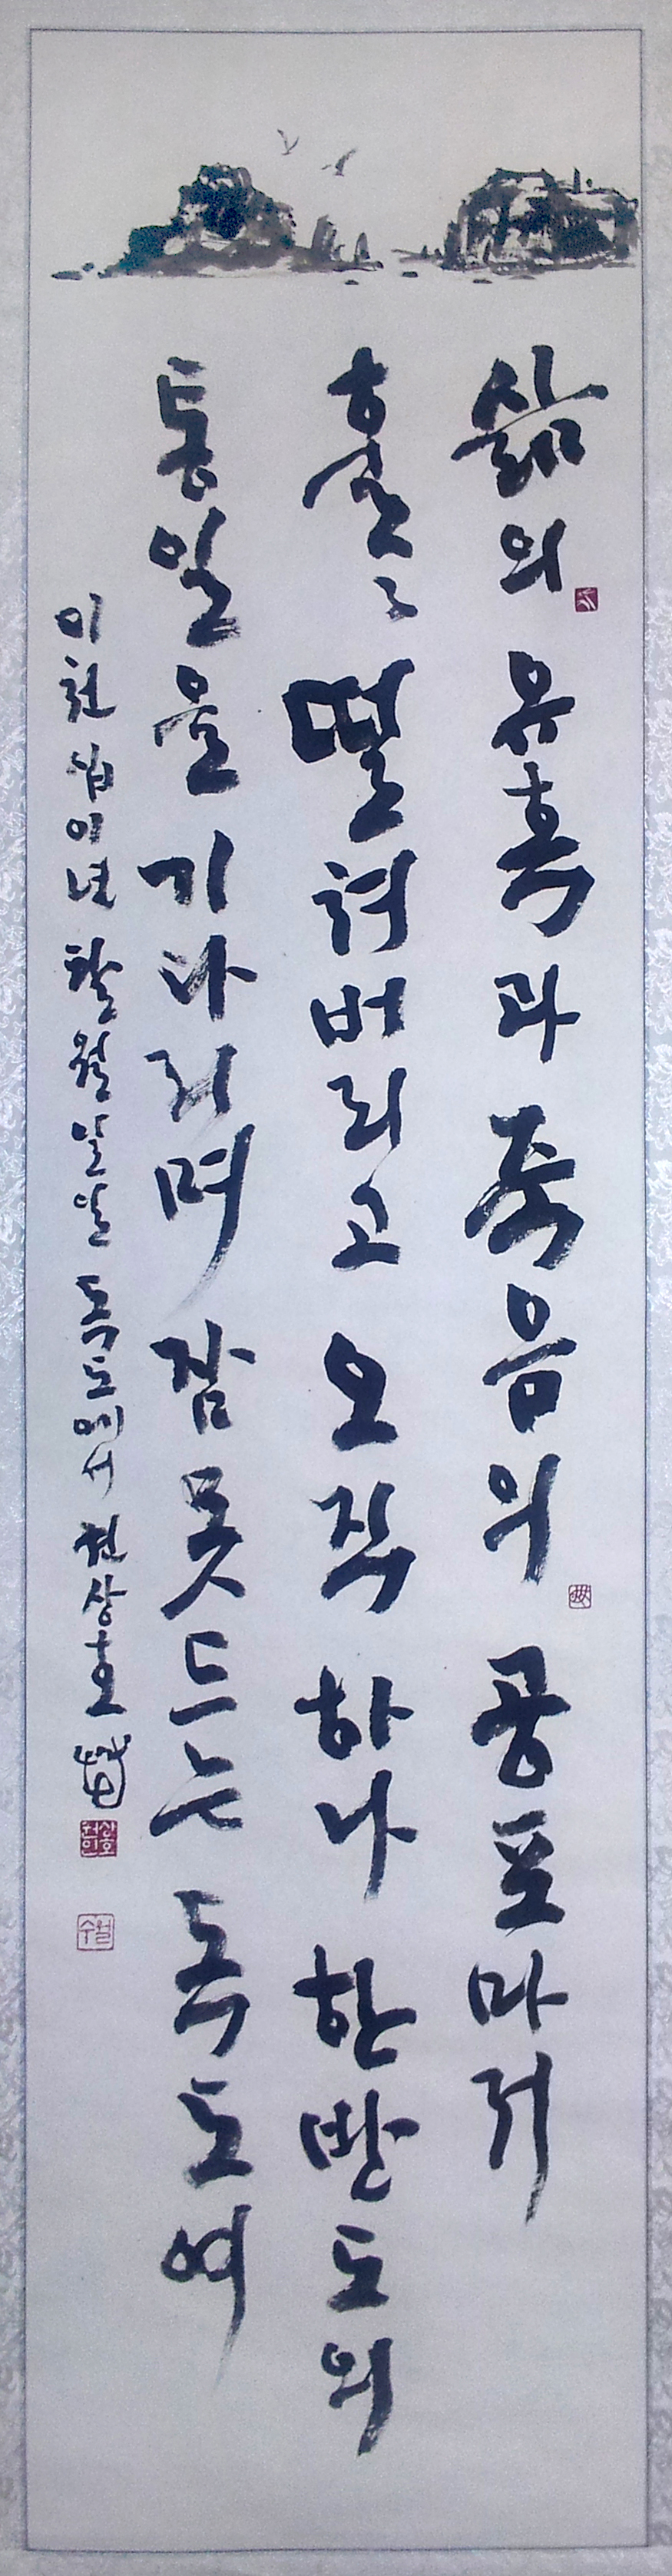 삶의 유혹과 죽음의 공포마저
훌훌 떨쳐버리고 오직 하나 한반도의
통일을 기다리며 잠 못 드는 독도여
이천십이년 팔월 독도에서 천상호